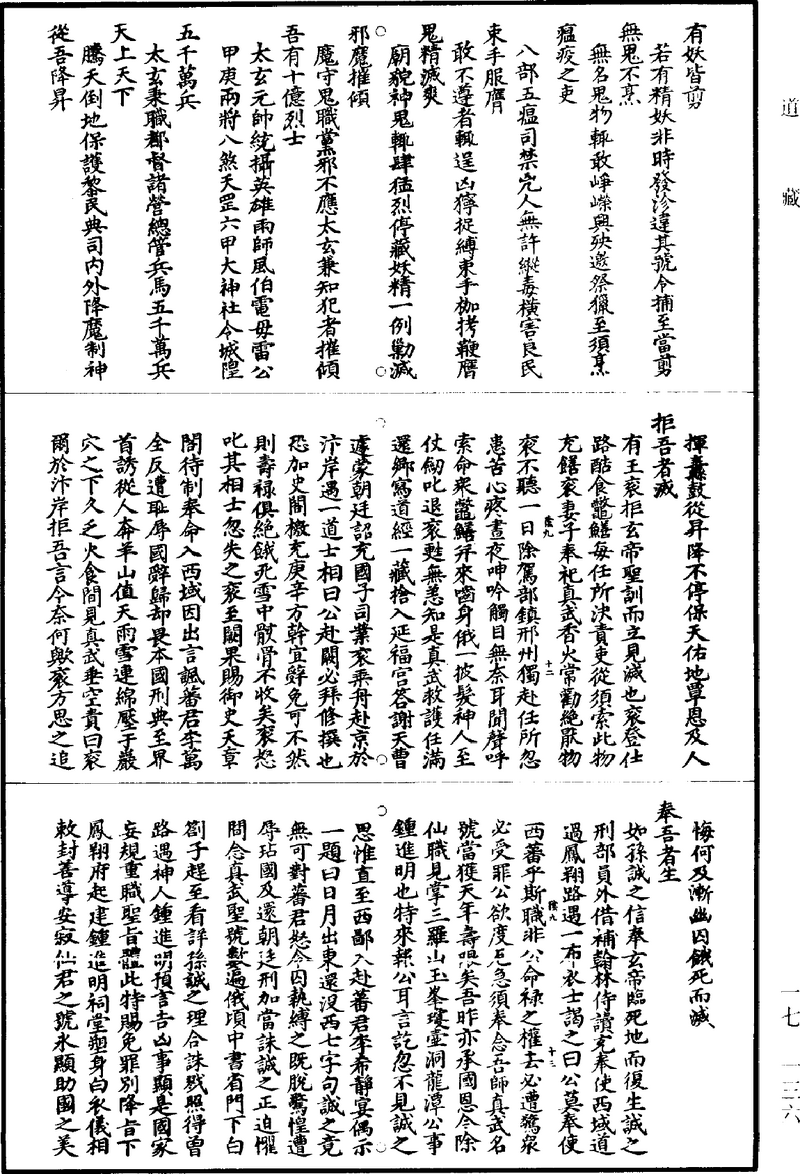 道藏
一七
一三六
有妖皆剪
若有精妖非時發沴違其號令捕至當剪
無鬼不烹
無名鬼物輒敢崢嶸興殃邀祭獵至須烹
瘟疫之吏
八部五瘟司禁兇人無許縱毒橫害良民
束手服膺
敢不遵者輒逞凶獰捉縛束手枷拷鞭膺
鬼精滅爽
廟貌神鬼輒肆猛烈停藏妖精一例勦滅
邪魔摧傾
魔守鬼職黨邪不應太玄兼知犯者摧傾
吾有十億烈士
太玄元帥統攝英雄雨師風伯電母雷公
甲庚兩將八煞天罡六甲大神社令城隍
五千萬兵
太玄秉職都督諸營總管兵馬五千萬兵
天上天下
騰天倒地保護黎民典司內外降魔制神
從吾降昇
揮纛鼓從昇降不停保天佑地單恩及人
拒吾者滅
有王衮拒玄帝聖訓而立見滅也衮登仕
路酷食鼈鱔每任所決責吏從須索此物
充饍衮妻子奉祀真武香火常勸絕厭物
衮不聽一日除駕部鎮邢州獨赴任所忽
患苦心疼晝夜呻吟觸目無奈耳聞聲呼
索命衆鼈鱔并來嚙身俄一披髮神人至
仗劒叱退衮甦無恙知是真武救護任滿
還鄉寫道經一藏捨入延福宮答謝天曹
遽蒙朝廷詔充國子司業衮乘舟赴京於
汴岸遇一道士相曰公赴闕必拜修撰也
恐加史閣檄充庚辛方幹宜辭免可不然
則壽祿俱絕餓死雪中骸骨不收矣衮怒
叱其相士忽失之衮至闕果賜御史天章
閣待制奉命入西域因出言諷蕃君李萬
全反遭恥辱國辭歸却畏本國刑典至界
首誘從人奔羊山值天雨雪連綿壓于巖
穴之下久乏火食間見真武垂空責曰衮
爾於汴岸拒吾言今奈何歟衮方思之追
悔何及漸幽囚餓死而滅
奉吾者生
如孫誠之信奉玄帝臨死地而復生誠之
刑部員外借補翰林侍讀充奉使西域道
過鳳翔路遇一布衣士謁之曰公莫奉使
西蕃乎斯職非公命祿之權去必遭鶩衆
必受罪公欲度厄急須奉念吾師真武名
號當獲天年壽限矣吾昨亦承國恩今除
仙職見掌三羅山玉峯瓊壺洞龍潭公事
鍾進明也特來報公耳言訖忽不見誠之
思惟直至西鄙入赴蕃君李希靜宴偶示
一題曰日月出東還沒西七字句誠之竟
無可對蕃君怒令囚執縛之既脫驚惶遭
辱玷國及還朝廷刑加當誅誠之正迫懼
間念真武聖號數遍俄頃中書省門下白
劄子趕至看詳孫誠之理合誅戮照得曾
路遇神人鍾進明預言吉凶事顯是國家
妄規重職聖旨體此特賜免罪別降旨下
鳳翔府起建鍾進明祠堂塑身白衣儀相
敕封善導安寂仙君之號永顯助國之美
陰九
十二
陰九
十三